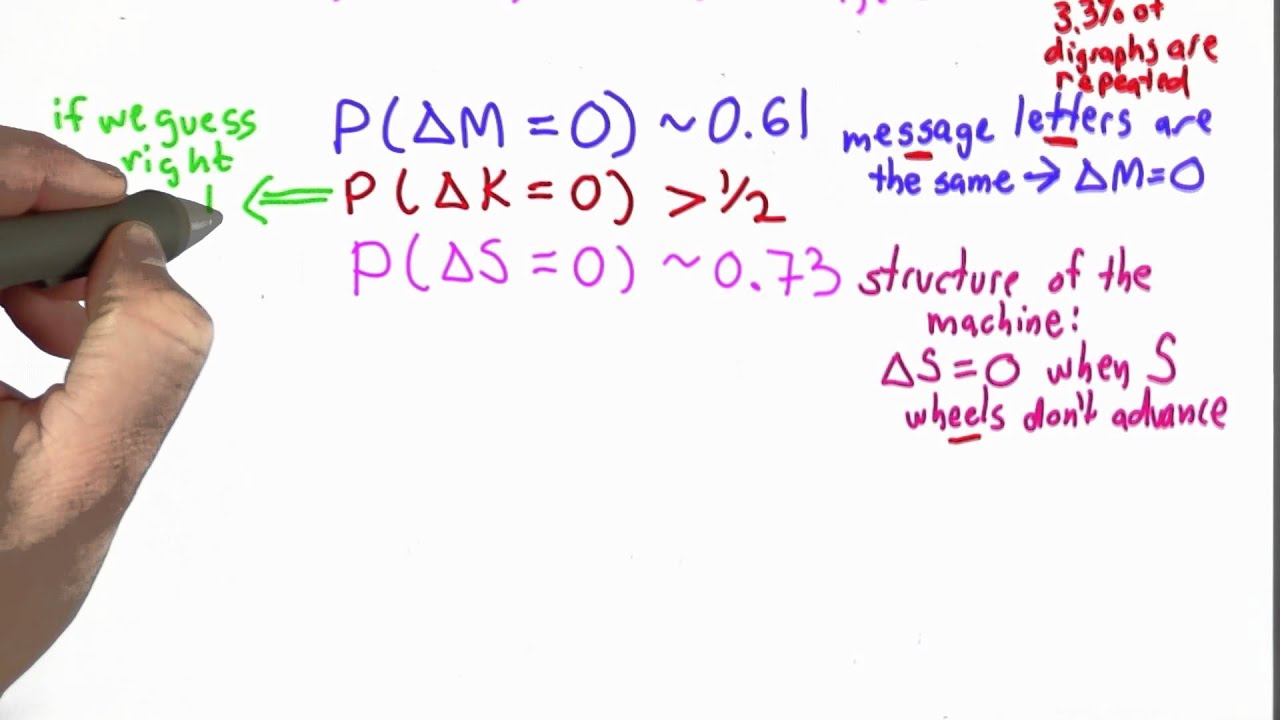 3.3% of
digraphs are
repeated
if we guess
right
P(ΔM = 0) ~ 0.61
message letters are
the same → ΔM=0
⇐ P(ΔK = 0) > 1/2
P(ΔS = 0) ~ 0.73
structure of the
machine:
ΔS = 0 when S
wheels don't advance